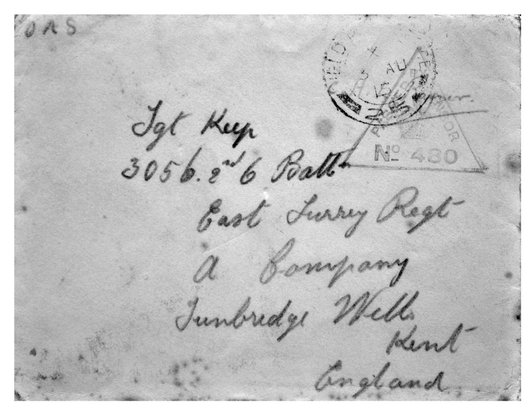 OAS
FIELD
AU
15
PASSED
CENSOR
No 480
Sgt Keep
3056. 2nd 6 Batt
East Surrey Regt
A Company
Tunbridge Wells
Kent
England